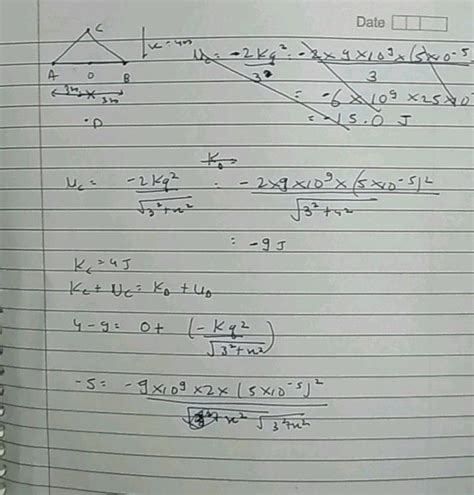 Date
C
x = 4m
A O B
3m 3m
D
U₀ = -2Kq²/3 = -2×9×10⁹×(5×10⁻⁵/3
= -6×10⁹×25×10
= -15.0 J
U_c = -2Kq²/√(3²+x²) = -2×9×10⁹×(5×10⁻⁵)²/√(3²+4²)
= -9J
K_c = 4J
K_c + U_c = K_D + U_D
4-9 = 0 + (-Kq²/√(3²+x²))
-5 = -9×10⁹×2×(5×10⁻⁵)²/√(3²+x²)